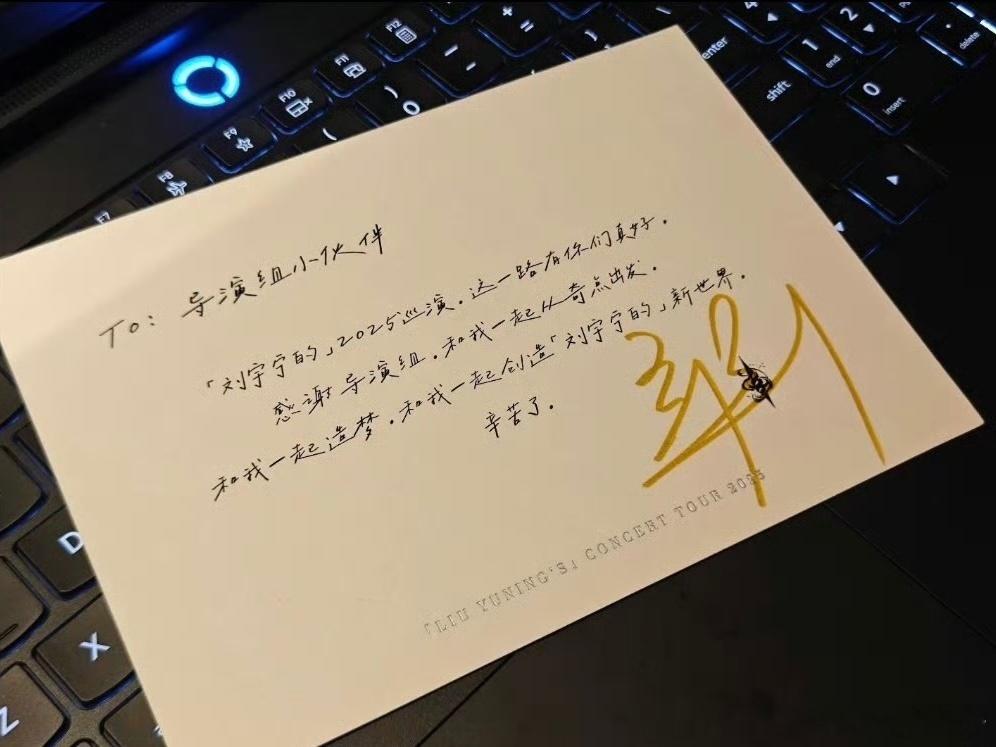 TO: 导演组小伙伴
「刘宇宁的」2025巡演.这一路有你们真好.
感谢导演组.和我一起从奇点出发.
和我一起造梦.和我一起创造「刘宇宁的」新世界.
辛苦了.
「LIU YUNING'S」CONCERT TOUR 2025
F12
F11
F10
F9
F8
F7
enter
shift
1
end
2
4
0
insert
delete
D
X
Z